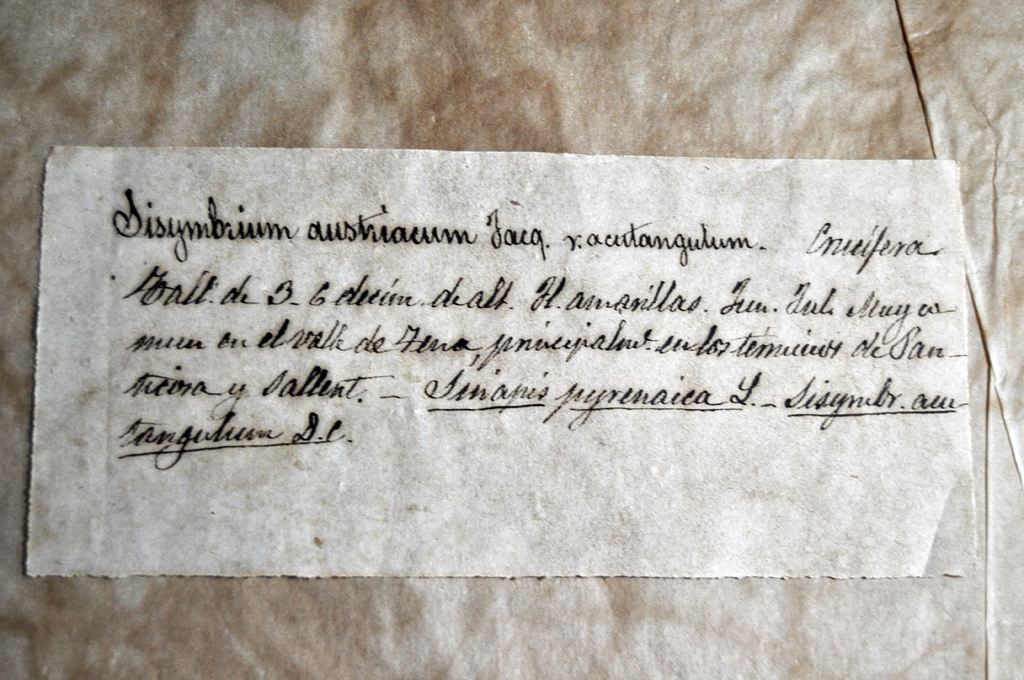 Sisymbrium austriacum Jacq. v. acutangulum. Crucífera
Tall. de 3-6 decím. de alt. Fl. amarillas. Jun. Jul. Muy co
mun en el valle de Tena, principalmte. en los términos de Pan-
ticosa y Sallent. - Sinapis pyrenaica L. - Sisymbr. acu-
tangulum D.C.